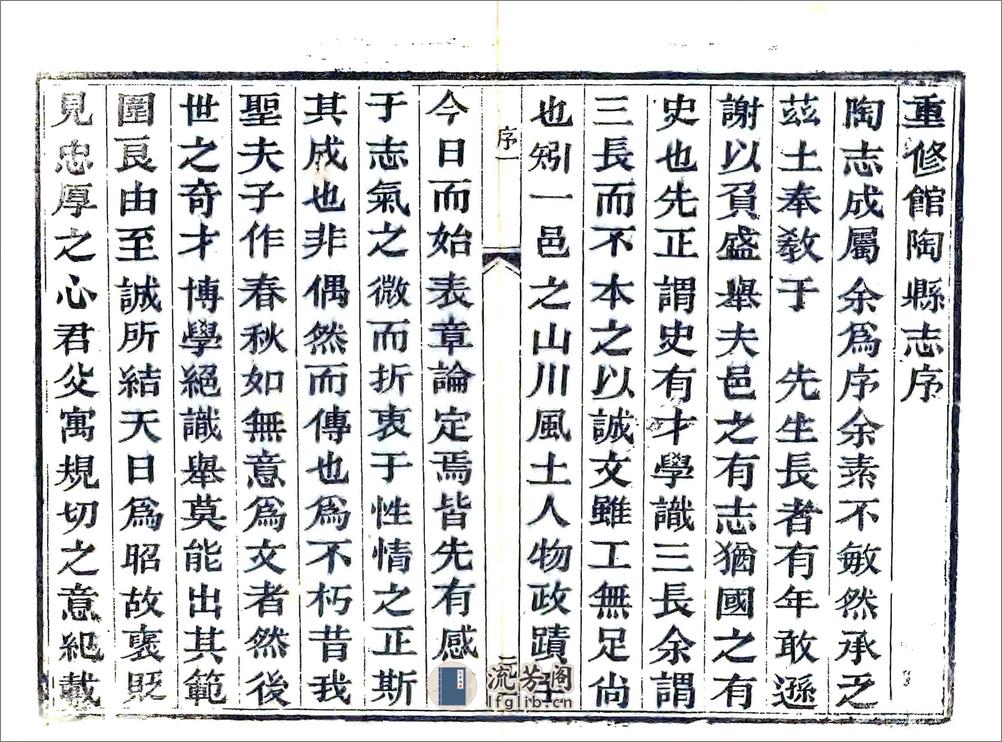 重修館陶縣志序
陶志成屬余爲序余素不敏然承乏
茲土奉敎于　先生長者有年敢遜
謝以負盛舉夫邑之有志猶國之有
史也先正謂史有才學識三長余謂
三長而不本之以誠文雖工無足尚
也矧一邑之山川風土人物政蹟至
序一
一
今日而始表章論定焉皆先有感
于志氣之微而折衷于性情之正斯
其成也非偶然而傳也爲不朽昔我
聖夫子作春秋如無意爲文者然後
世之奇才博學絕識舉莫能出其範
圍良由至誠所結天日爲昭故褒貶
見忠厚之心君父寓規切之意紀載
流芳阁
lfglib.cn